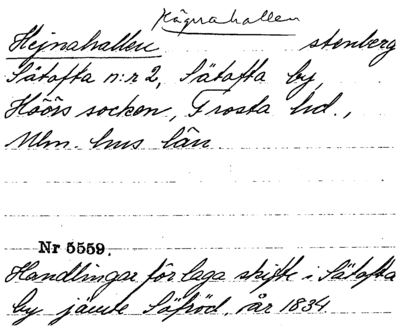 Hägnahallen
Hejnahallen stenberg
Sätofta n:r 2, Sätofta by,
Höörs socken, Frosta hd.,
Mlm. hus län
Nr 5559.
Handlingar för laga skifte i Sätofta
by jämte Söfröd, år 1834.